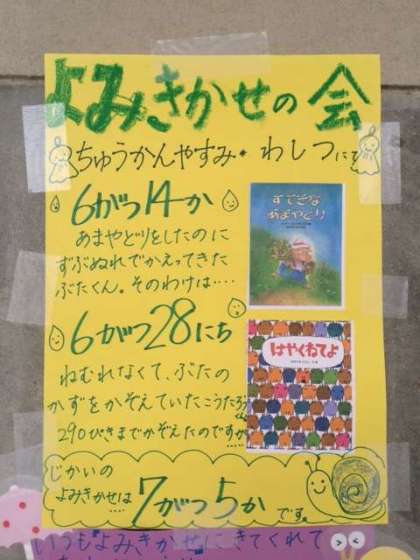 よみきかせの会
ちゅうかんやすみ・わしつにて
6がつ14か
あまやどりをしたのに
ずぶぬれでかえってきた
ぶたくん。そのわけは‥‥
すてきな
あまやどり
6がつ28にち
ねむれなくて、ぶたの
かずをかぞえていたこうたろうくん
290ぴきまでかぞえたのですが…
はやくねてよ
じかいの
よみきかせは
7がつ5かです。
いつもよみきかせにきてくれて